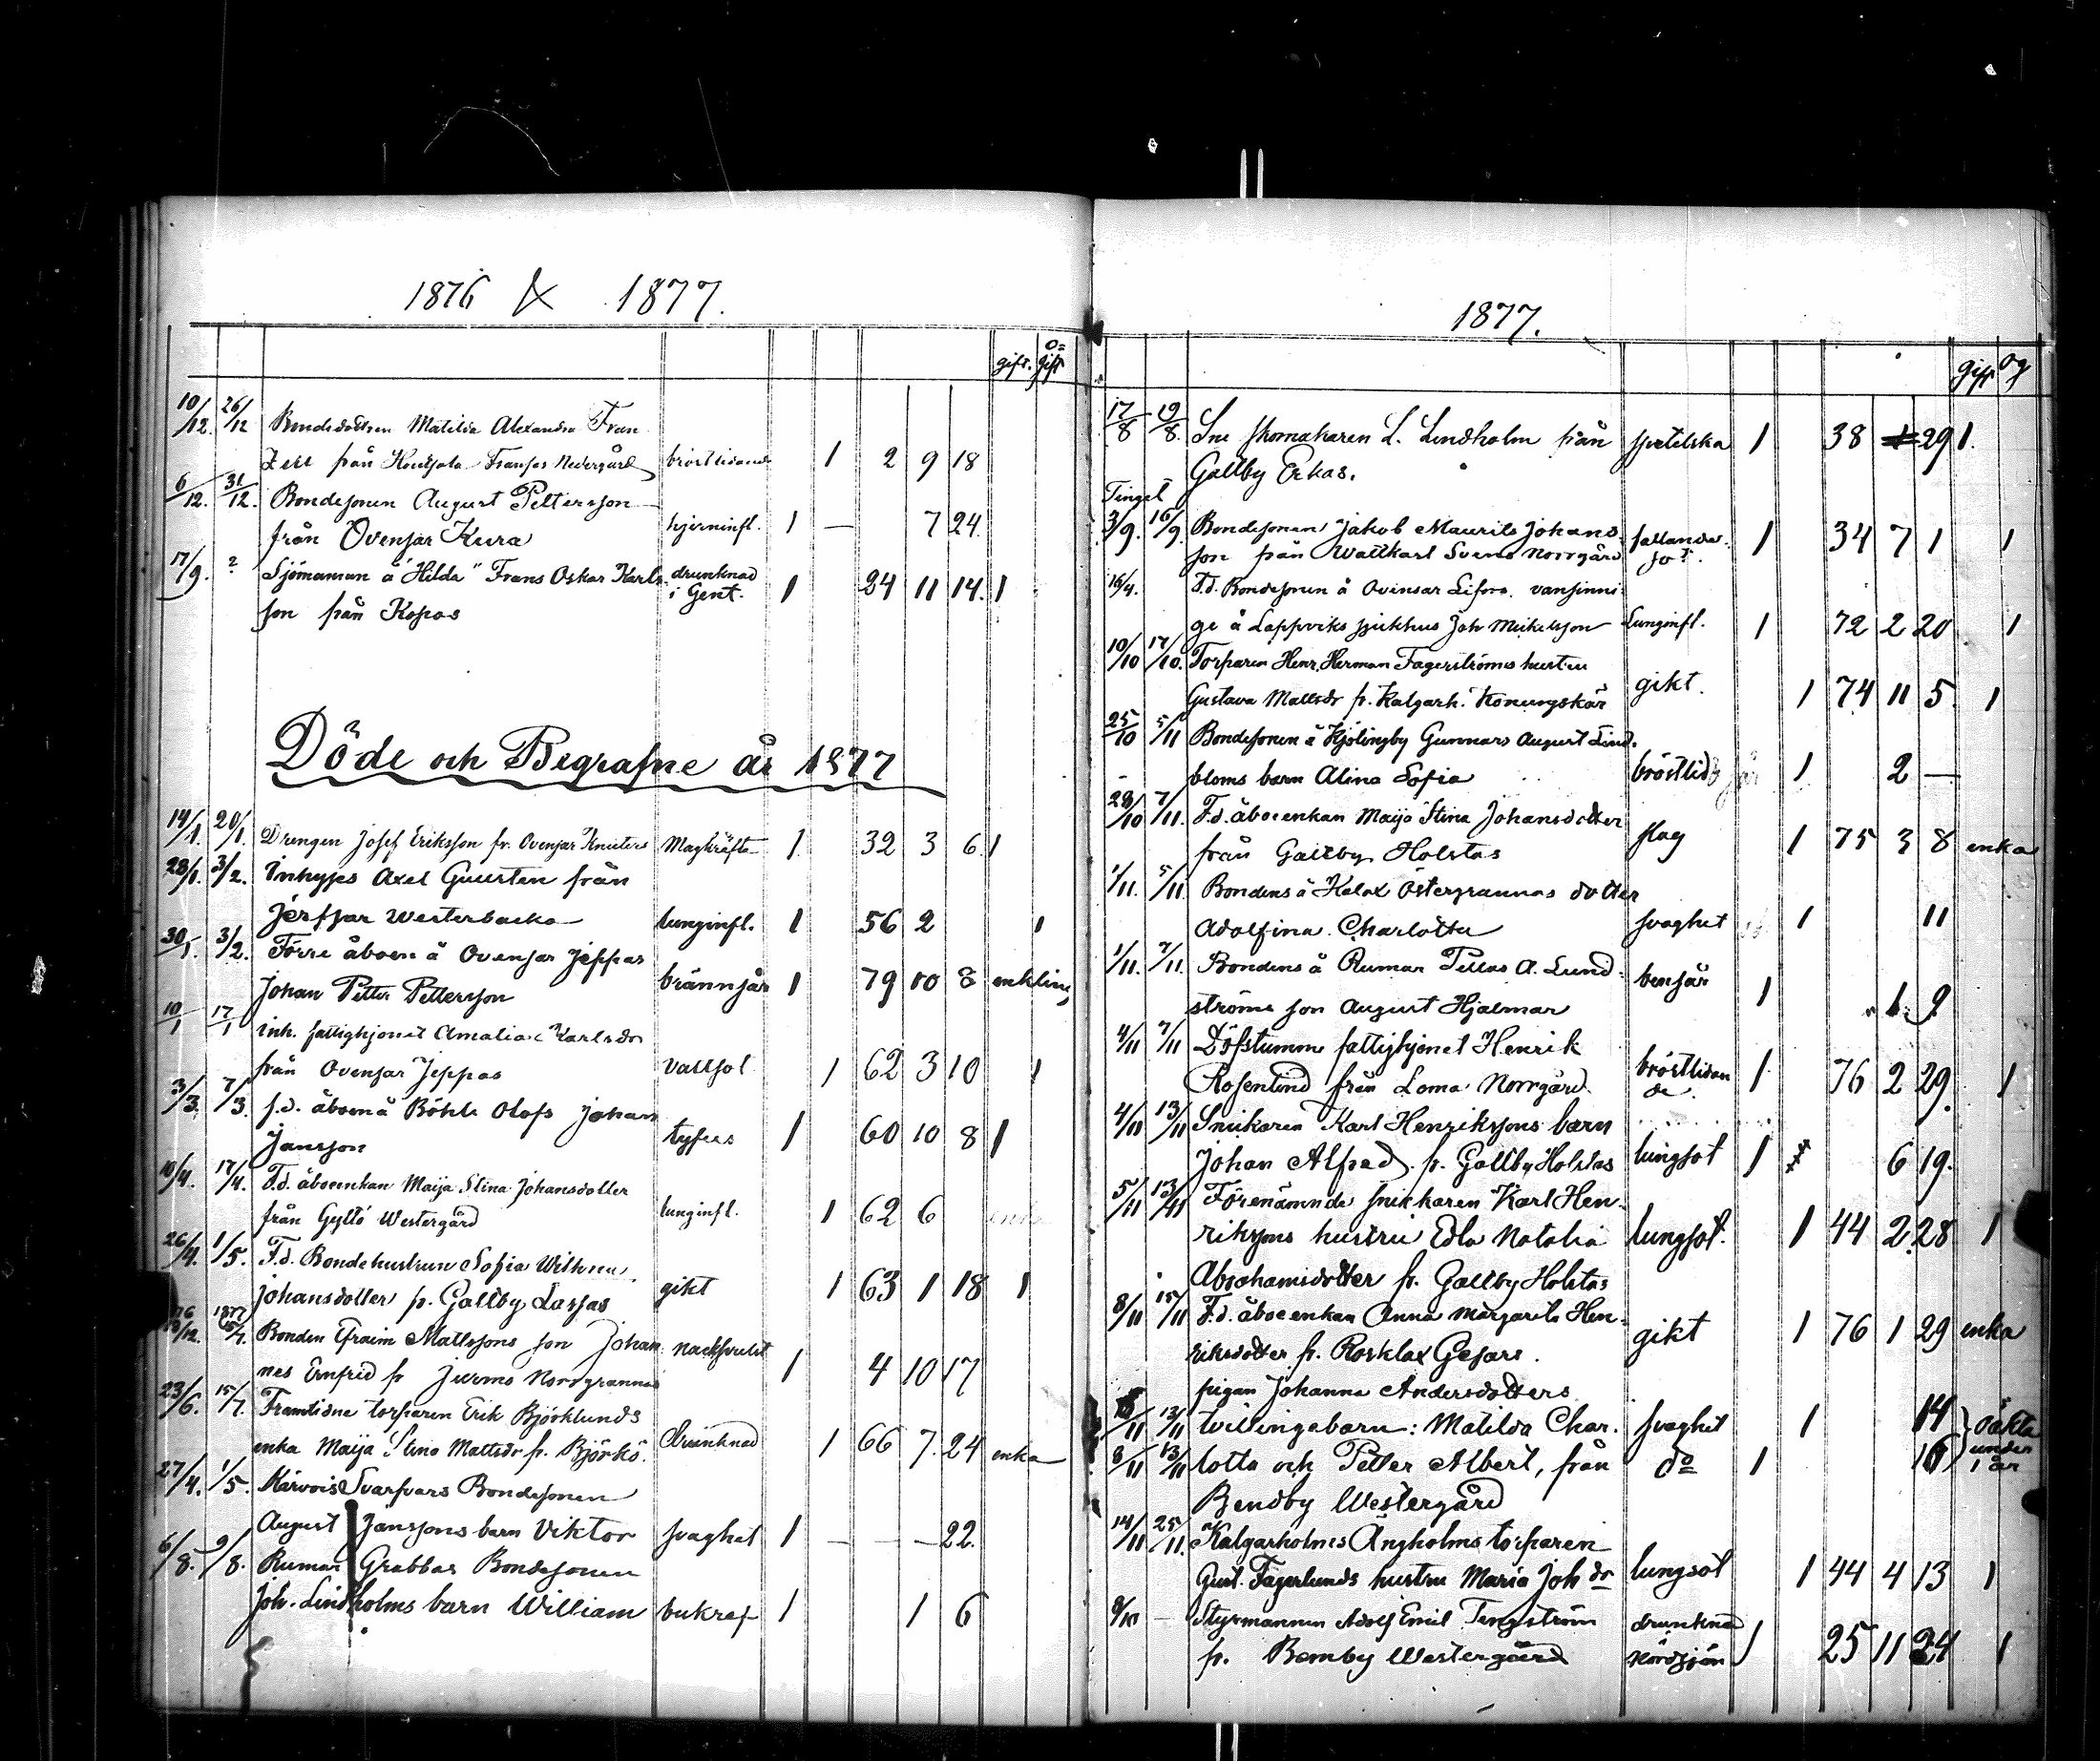 1876 & 1877.
gift. o=gift
10/12. 26/12 Bondedottren Matilda Alexandra Fran
zell från Houtsala Fransas Nedergård bröstlidande 1 2 9 18
6/12. 31/12. Bondesonen August Pettersson
från Övensar Kura hjerninfl. 1 — 7 24.
17/9. ? Sjömannen å "Hilda" Frans Oskar Karls- drunknad
son från Kopas i Gent. 1 24 11 14. 1
Döde och Begrafne år 1877
14/1. 20/1. Drengen Josef Eriksson fr. Ovensar Knuters Magkräfta 1. 32 3 6. 1
28/1. 3/2. Inhyses Axel Guusten från
Jerfsar Westerbacka lunginfl. 1 56 2 1
30/1. 3/2. Förre åboen å Ovensar Jeppas
Johan Petter Pettersson brännsår 1 79 10 8 enkling
10/1 17/1 inh. fattighjonet Amalia Karlsdr
från Ovensar Jeppas vattsot 1 62 3 10 1
3/3. 7/3. f.d. åboen å Böhle Olofs Johan
Jansson tyfus 1 60 10 8 1
10/4. 17/4. F.d. åboenkan Maija Stina Johansdotter
från Gyltö Westergård lunginfl. 1 62 6 enka
26/4. 1/5. F.d. Bondehustrun Sofia Wilhna
Johansdotter fr. Galtby Lassas gikt 1 63 1 18 1
76 1877
10/12. 15/7. Bonden Efraim Mattssons son Johan
nes Ernfrid fr Jurmo Norrgrannas nacksvulst 1 4 10 17
23/6. 15/7. Framlidne torparen Erik Björklunds
enka Maija Stina Mattsdr fr. Björkö. Drunknad 1 66 7. 24 enka
27/4. 1/5. Kärvois Svarfvars Bondesonen
August Janssons barn Viktor svaghet 1 — — — 22.
6/8. 9/8. Rumar Grabbas Bondesonen
Joh. Lindholms barn William bukref 1 1 6
1877.
gift og
17/8 19/8. Sne skomakaren L. Lindholm från spetelska 1 38 29 1.
Galtby Erkas.
3/9. 16/9. Bondesonen Jakob Maurits Johans- fallande-
son från Wattkast Svens Norrgård sot. 1 34 7 1 1
16/4. F.d. Bondesonen å Ovensar Sifvers vansinni
ge å Lappviks sjukhus Joh Mickelsson Lunginfl. 1 72 2 20 1
10/10 17/10. Torparen Henr. Herman Fagerströms hustru
Gustava Mattsdr fr. Kalgarh. Konungskär gikt. 1 74 11 5. 1
25/10 5/11 Bondesonen å Kjölingby Gunnars August Lind-
bloms barn Alina Sofia bröstlid 1 2 —
28/10 7/11. F.d. åboenkan Maija Stina Johansdotter
från Galtby Holstas slag 1 75 3 8 enka
1/11. 5/11 Bondens å Kalax Östergrannas dotter
Adolfina Charlotta svaghet 1 11
1/11. 7/11. Bondens å Rumar Pellas A. Lund-
ströms son August Hjalmar bensår 1 1 9
4/11 7/11 Döfstumme fattighjonet Henrik
Rosenlind från Loma Norrgård bröstlidan
de 1 76 2 29. 1
4/11 13/11 Snickaren Karl Henrikssons barn
Johan Alfred fr. Galtby Holstas lungsot 1 6 19.
5/11 13/11 Förenämnde snickaren Karl Hen-
rikssons hustru Edla Natalia lungsot. 1 44 2. 28 1
Abrahamsdotter fr. Galtby Holstas
8/11 15/11 F.d. åboenkan Anna Margareta Hen-
riksdotter fr. Rosklax Gesars. gikt 1 76 1 29 enka
pigan Johanna Andersdotters
13/11 tvillingabarn: Matilda Char- svaghet 1 14 } oäkta
8/11 13/11 lotta och Petter Albert, från do 1 16 } under 1 år
Bendby Westergård
14/11 25/11. Kalgarholms Ängholms torparen
Gust. Fagerlunds hustru Maria Joh dr lungsot 1 44 4 13 1
Styrmannen Adolf Emil Tengström drunknad
fr. Bemby Westergård Nordsjön 1 25 11 24 1